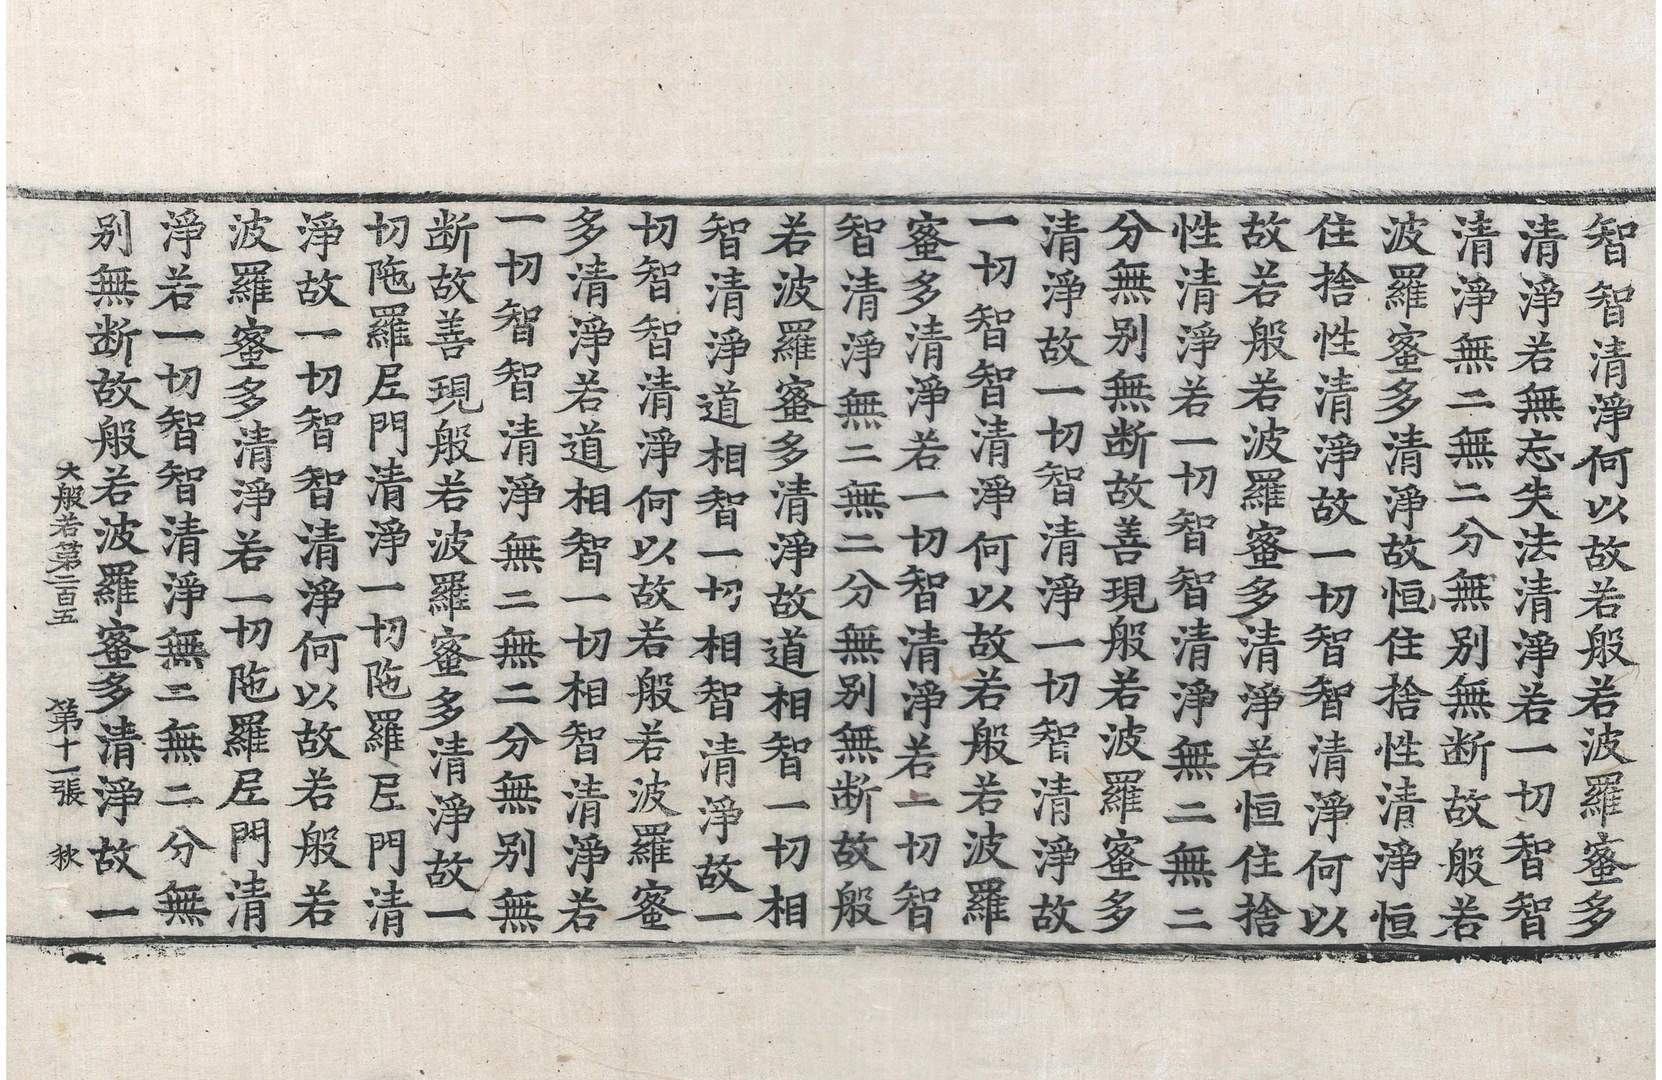 智智清淨何以故若般若波羅蜜多
清淨若無忘失法清淨若一切智智
清淨無二無二分無别無断故般若
波羅蜜多清淨故恒住捨性清淨恒
住捨性清淨故一切智智清淨何以
故若般若波羅蜜多清淨若恒住捨
性清淨若一切智智清淨無二無二
分無别無断故善現般若波羅蜜多
清淨故一切智清淨一切智清淨故
一切智智清淨何以故若般若波羅
蜜多清淨若一切智清淨若一切智
智清淨無二無二分無别無断故般
若波羅蜜多清淨故道相智一切相
智清淨道相智一切相智清淨故一
切智智清淨何以故若般若波羅蜜
多清淨若道相智一切相智清淨若
一切智智清淨無二無二分無别無
断故善現般若波羅蜜多清淨故一
切陁羅尼門清淨一切陁羅尼門清
淨故一切智智清淨何以故若般若
波羅蜜多清淨若一切陁羅尼門清
淨若一切智智清淨無二無二分無
别無断故般若波羅蜜多清淨故一
大般若第二百五 第十一張 秋